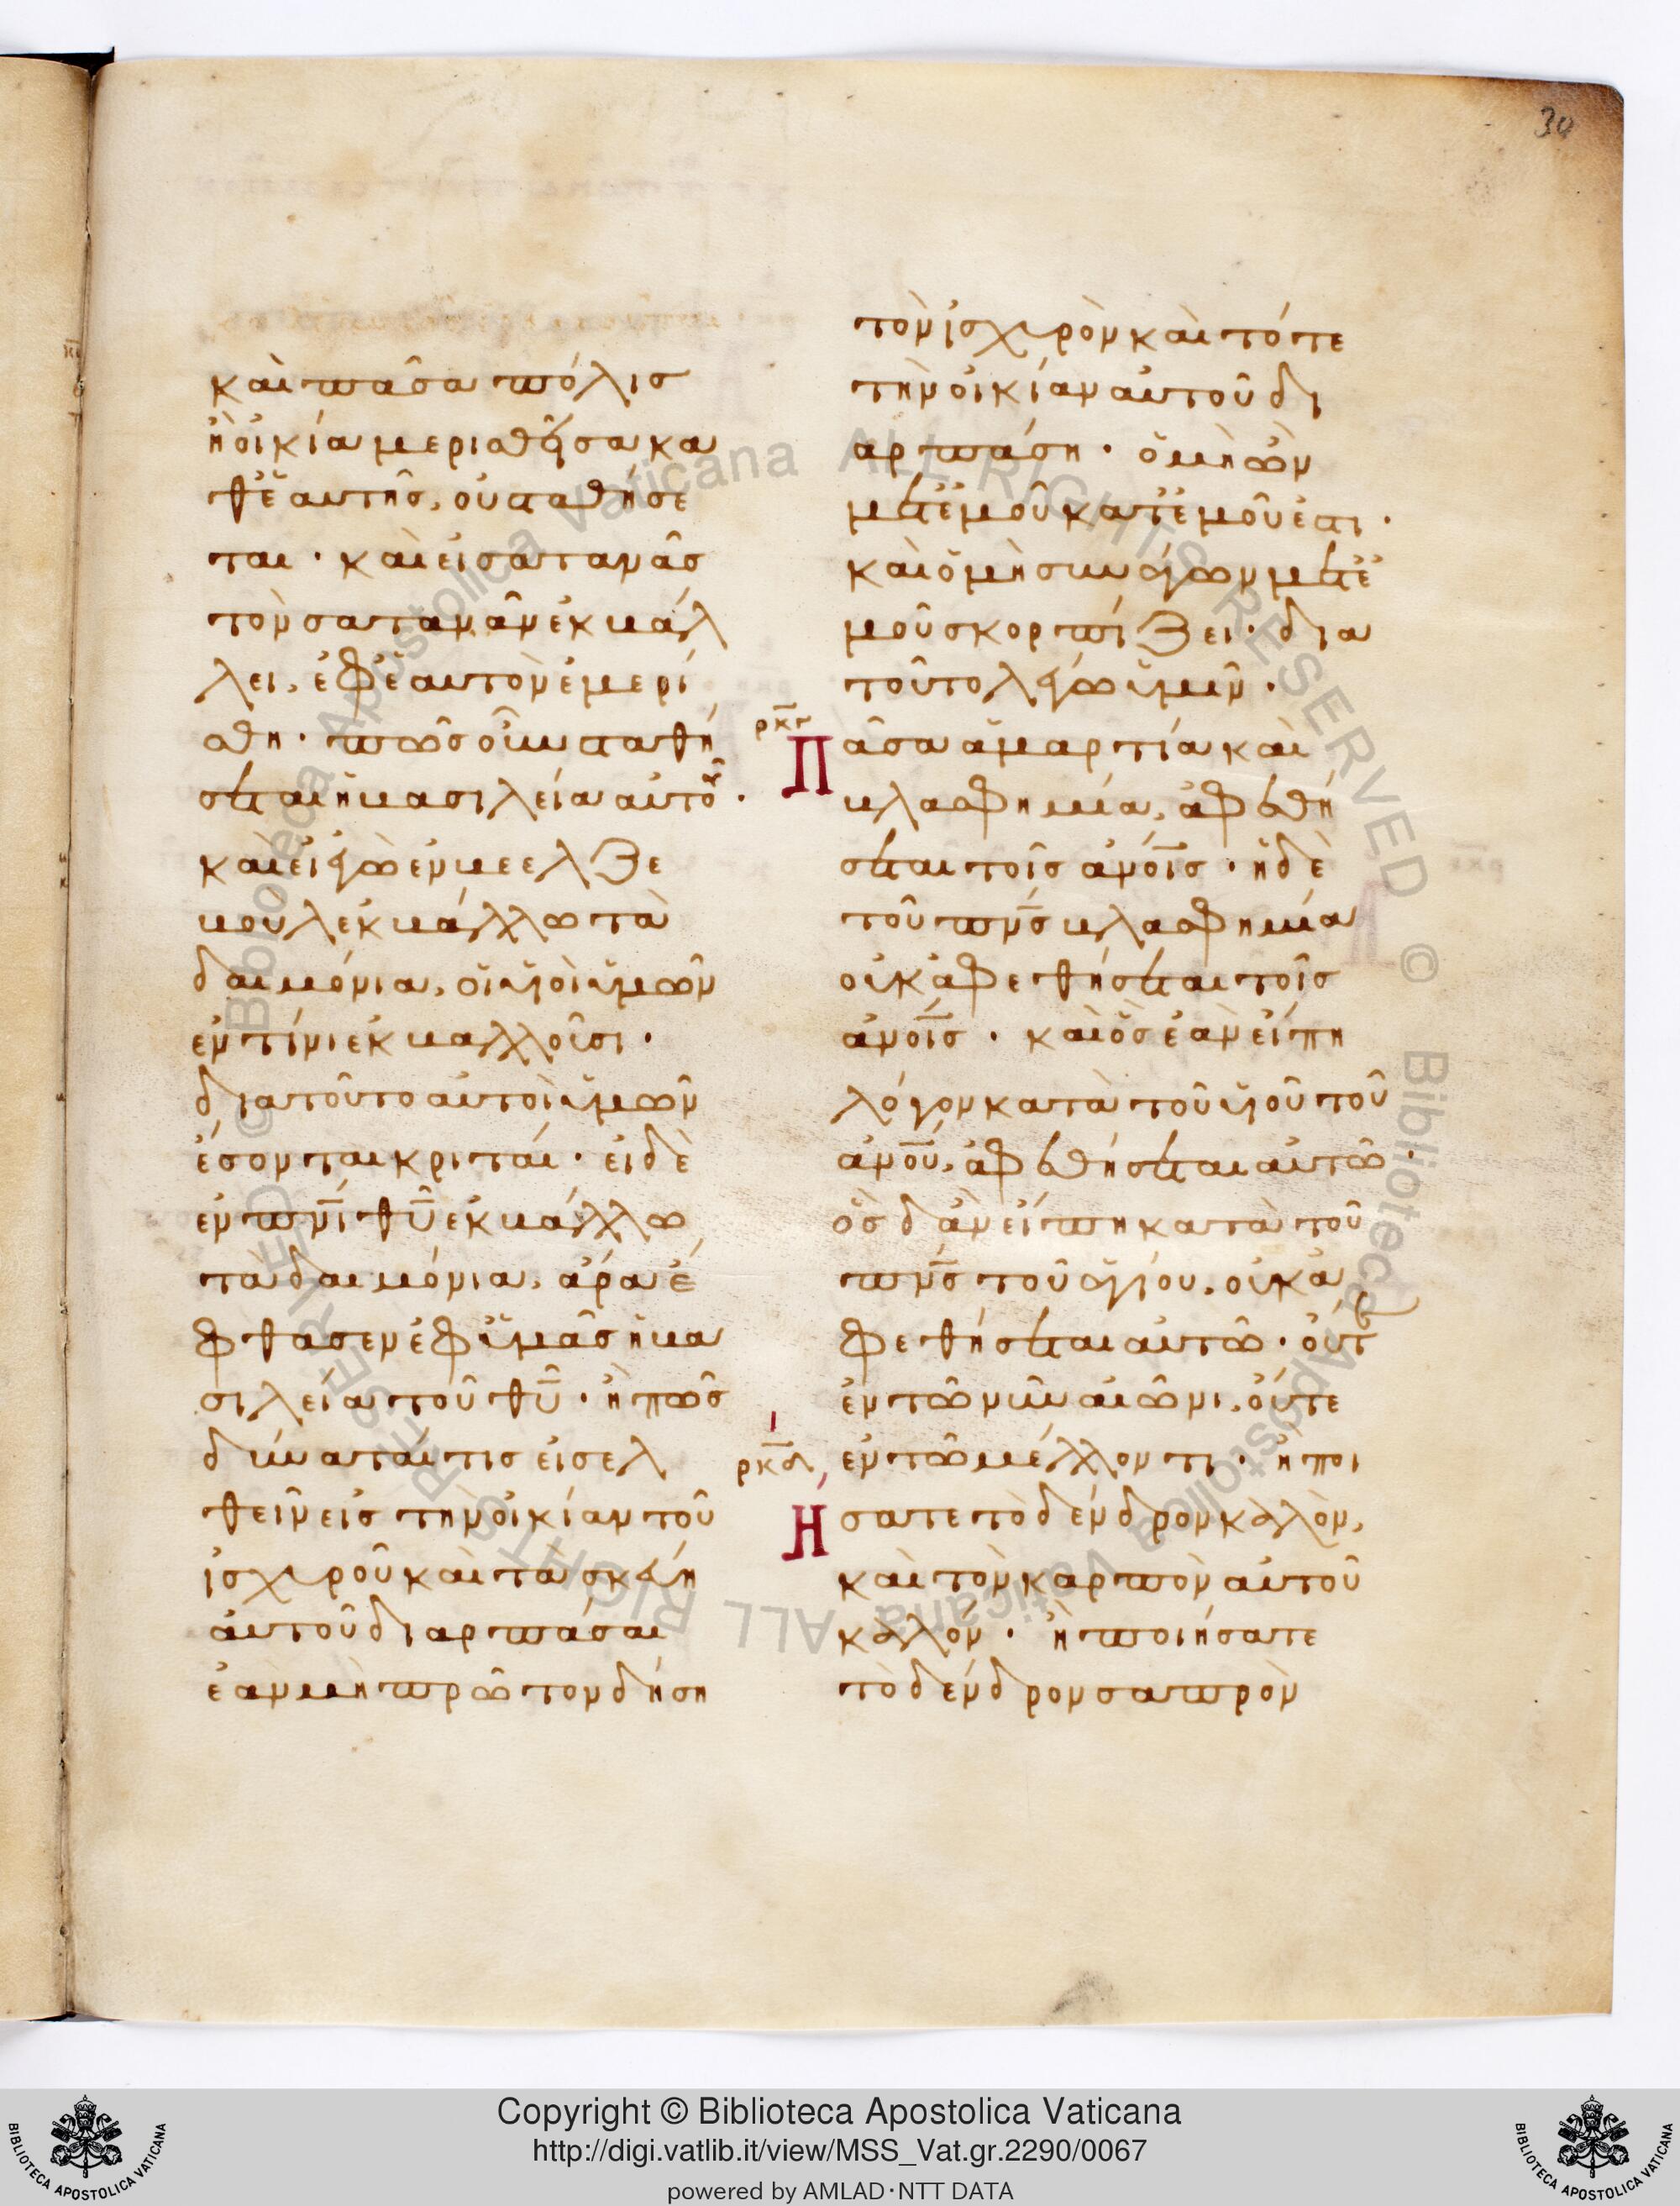 34
καὶ πᾶσα πόλισ
ἢ οἰκία μερισθεῖσα κα
θ' ἑαυτῆσ, οὐ σταθήσε
ται · καὶ εἰ σατανᾶσ
τὸν σατανᾶν ἐκβάλ
λει, ἐφ' ἑαυτὸν ἐμερί
σθη · πῶσ οὖν σταθή
σεται ἡ βασιλεία αὐτοῦ ·
καὶ εἰ ἐγὼ ἐν βεελζε
βοὺλ ἐκβάλλω τὰ
δαιμόνια, οἱ υἱοὶ ὑμῶν
ἐν τίνι ἐκβαλλοῦσι ·
διατοῦτο αὐτοὶ ὑμῶν
ἔσονται κριταί · εἰ δὲ
ἐν πνι θυ ἐκβάλλω
τὰ δαιμόνια, ἄρα ἔ
φθασεν ἐφ' ὑμᾶσ ἡ βα
σιλεία τοῦ θυ · ἢ πῶσ
δύναταί τισ εἰσελ
θεῖν εἰσ τὴν οἰκίαν τοῦ
ἰσχυροῦ καὶ τὰ σκεύη
αὐτοῦ διαρπάσαι
ἐὰν μὴ πρῶτον δήση
τὸν ἰσχυρὸν καὶ τότε
τὴν οἰκίαν αὐτοῦ δι
αρπάση · ὁ μὴ ὢν
μετ' ἐμοῦ κατ' ἐμοῦ ἐστι ·
καὶ ὁ μὴ συνάγων μετ' ἐ
μοῦ σκορπίζει · δια
τοῦτο λέγω ὑμῖν ·
ρκγ
Πᾶσα ἁμαρτία καὶ
βλασφημία, ἀφεθή
σεται τοῖσ ἀνοισ · ἡ δὲ
τοῦ πνσ βλασφημία
οὐκ ἀφεθήσεται τοῖσ
ἀνοισ · καὶ ὃσ ἐὰν εἴπη
λόγον κατὰ τοῦ υἱοῦ τοῦ
ἀνου, ἀφεθήσεται αὐτῶ ·
ὃσ δ' ἂν εἴπη κατὰ τοῦ
πνσ τοῦ ἁγίου, οὐκ ἀ
φεθήσεται αὐτῶ · οὔτε
ἐν τῶ νῦν αἰῶνι, οὔτε
ρκδ
ἐν τῶ μέλλοντι · ἢ ποι
Ήσατε τὸ δένδρον καλὸν,
καὶ τὸν καρπὸν αὐτοῦ
καλόν · ἢ ποιήσατε
τὸ δένδρον σαπρὸν
© Biblioteca Apostolica Vaticana ALL RIGHTS RESERVED © Biblioteca Apostolica Vaticana ALL RIGHTS RESERVED
Copyright © Biblioteca Apostolica Vaticana
http://digi.vatlib.it/view/MSS_Vat.gr.2290/0067
powered by AMLAD·NTT DATA
BIBLIOTECA APOSTOLICA VATICANA
BIBLIOTECA APOSTOLICA VATICANA